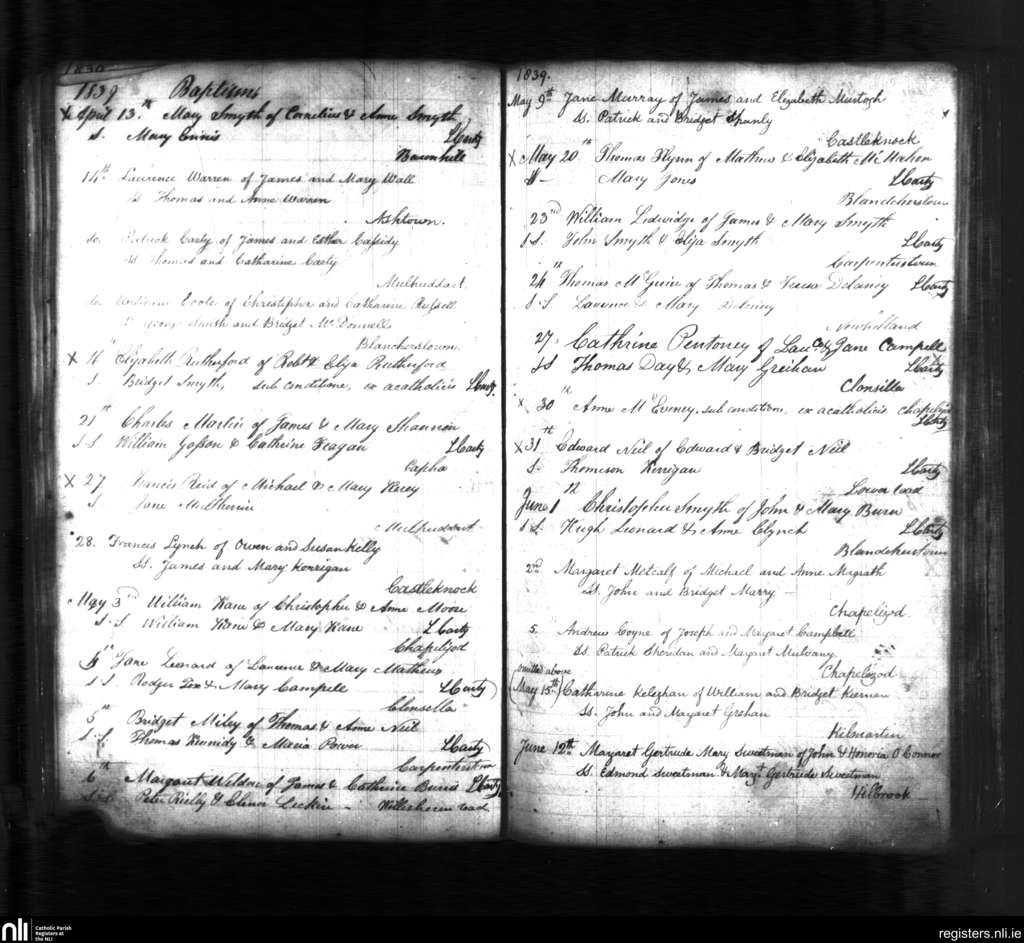 1839
1839 Baptisms
x April 13.th Mary Smyth of Cornelius & Anne Smyth
S. Mary Ennis LCarty
Barnhill
14th Laurence Warren of James and Mary Wall
Ss Thomas and Anne Warren
Ashtown.
do. Patrick Carty of James and Esther Cassidy
Ss Thomas and Catharine Carty
Mulhuddart.
do. William of Christopher and Catharine Russell
Smith and Bridget McDonnell
Blanchestown.
x Elizabeth Rutherford of Robt & Eliza Rutherford
S. Bridget Smyth, sub conditione, ex acatholicis LCarty.
21st Charles Martin of James & Mary Shannon
S S William & Cathrine Feagan LCarty
x 27 Francis Reid of Michael & Mary
S Jane
Mulhuddart
28. Francis Lynch of Owen and Susan Kelly
Ss. James and Mary Kerrigan
Castleknock
May 3rd William Kane of Christopher & Anne Moore
S.S William Kane & Mary Kane LCarty
Chapelizod
Jane Leonard of Laurence & Mary Mathews
S S Rodger Fox & Mary Campele LCarty
Clonsella
5th Bridget Miley of Thomas & Anne Neil
S.S. Thomas Kennidy & Maria Power LCarty
Carpenterstown
6th Margaret of James & Catherine Burns LCarty
Peter Rielly & road
1839.
May 9th Jane Murray of James and Elizabeth Murtogh
Ss. Patrick and Bridget
Castleknock
x May 20th Thomas Flynn of Mathew & Elizabeth McMahon
Mary Jones LCarty
Blancherstown
23rd William Ledwidge of James & Mary Smyth
S S. John Smyth & Eliza Smyth LCarty
Carpenterstown
24th Thomas McGuire of Thomas & Teresa Delaney LCarty
S.S Laurence & Mary
Newholland
27 Cathrine Pentoney of Laucs & Jane Campell
SS Thomas Day & Mary LCarty
Clonsilla
x 30th Anne McEveney, sub conditione, ex acatholicis Chapelizod
LCarty
x 31st Edward Neil of Edward & Bridget Neil
S. Thomson Kerrigan LCarty
Lower road
June 1st Christopher Smyth of John & Mary Burn
S S. Hugh Leonard & Anne Clynch LCarty
Blanchestown
2nd Margaret Metcalf of Michael and Anne Magrath
Ss. John and Bridget Marry -
Chapelizod
5. Andrew Coyne of Joseph and Margaret Campbell
Ss. Patrick Sheridan and Margaret Mulvany
Chapelizod
omitted above
(May 15th) Catharine Keleghan of William and Bridget Kiernan
Ss. John and Margaret Grehan
Kilmartin
June 12th Margaret Gertrude Mary Sweetman of John & Honoria O'Connor
Ss. Edmond Sweetman & Margt Gertrude Sweetman
Hilbrook
nli
Catholic Parish
Registers at
the NLI
registers.nli.ie